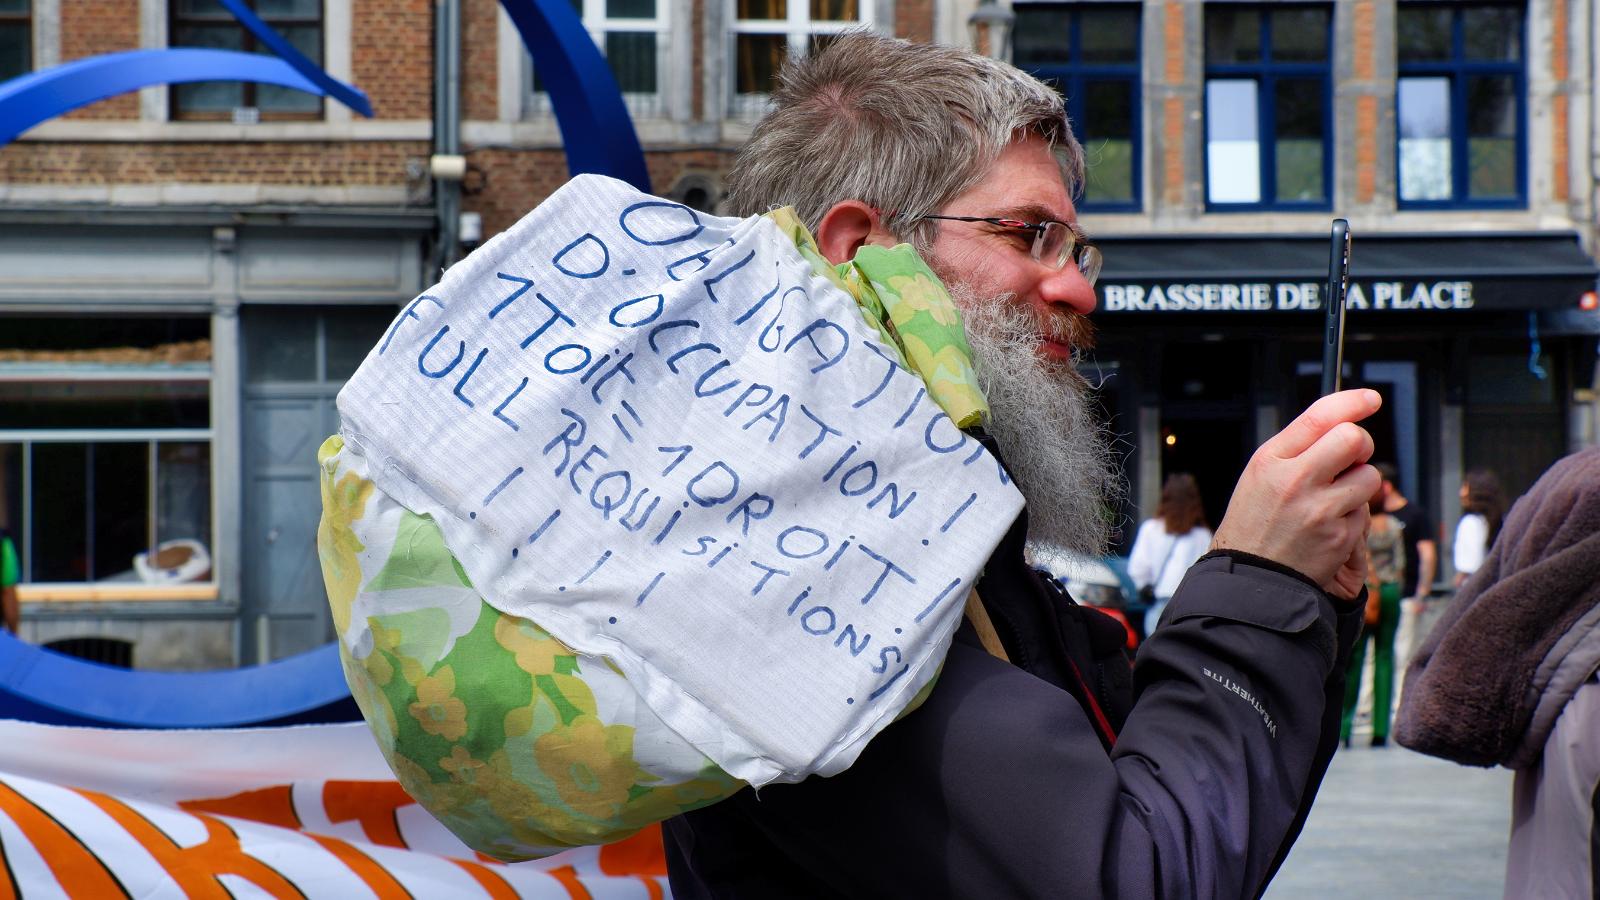 OBLIGATION
D'OCCUPATION !
1TOiT = 1DROiT !
FULL REQUiSiTIONS!
! ! ! !
BRASSERIE DE LA PLACE
WEATHERTITE